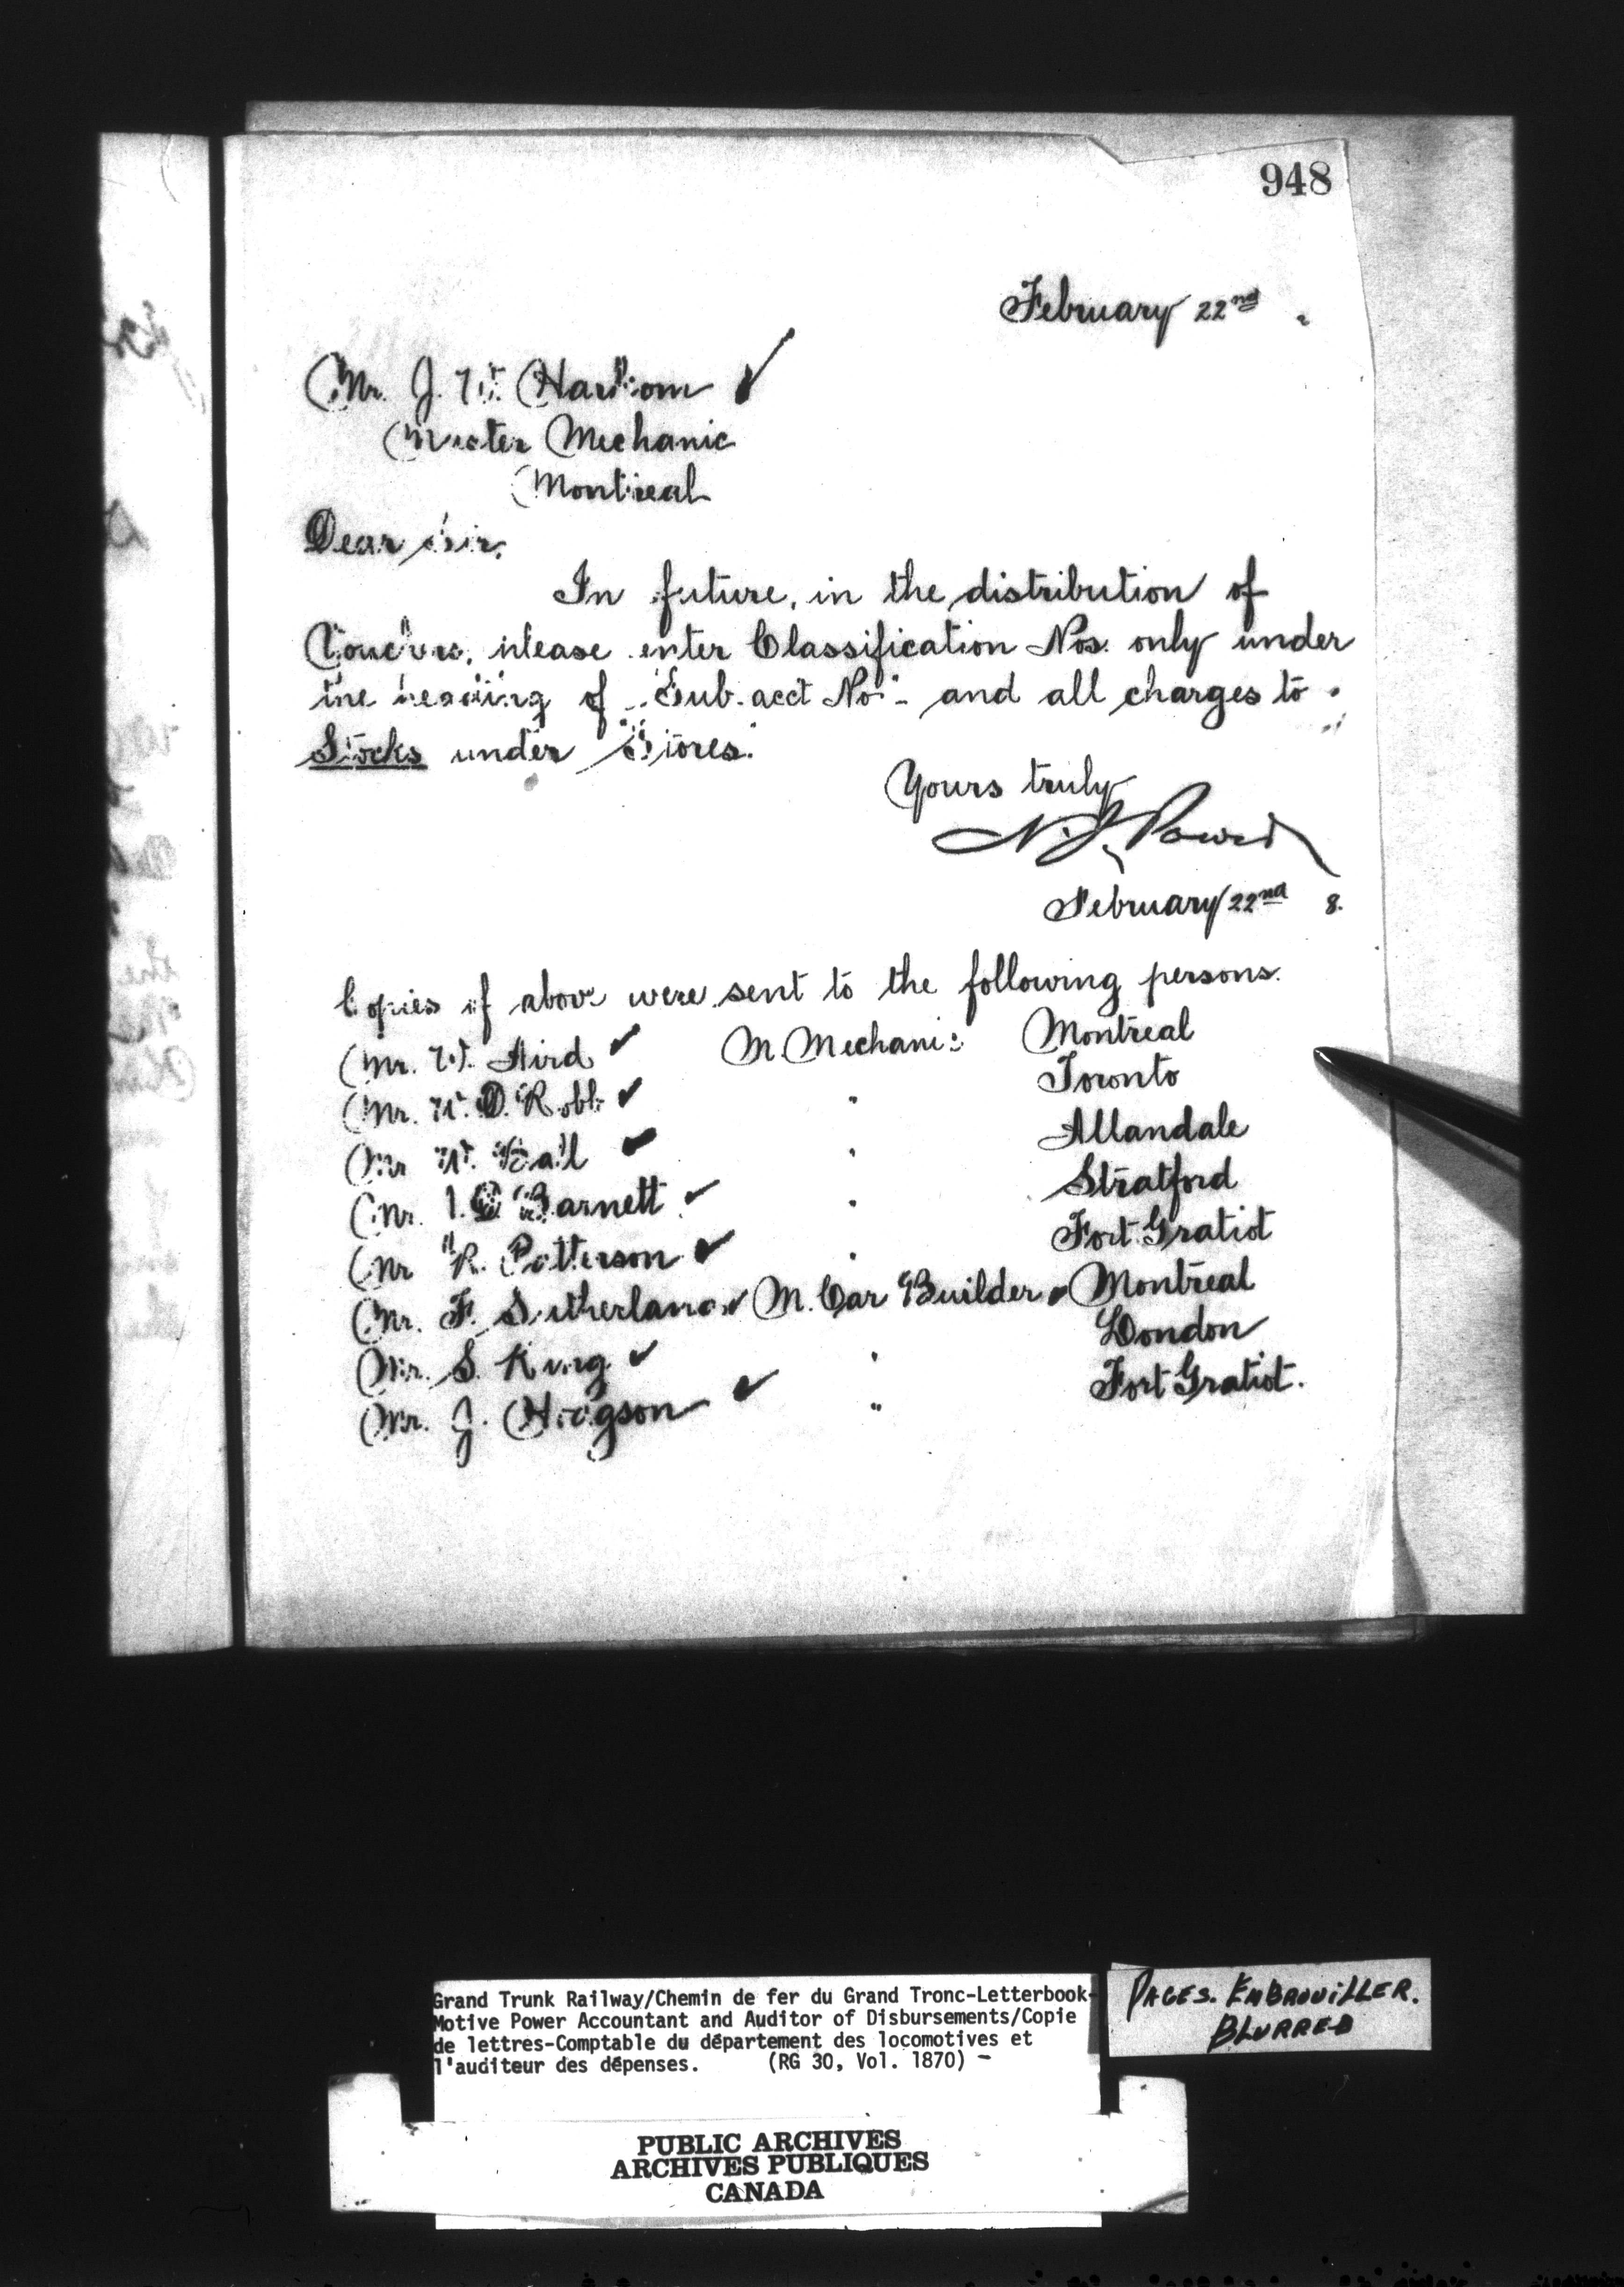 948
February 22nd
Mr. J. W. Harkom
Master Mechanic
Montreal
Dear Sir,
In future, in the distribution of
Vouchers, please enter Classification Nos. only under
the heading of "Sub. acct No" - and all charges to
Stocks under "Stores."
Yours truly
N. J. Power
February 22nd 8.
Copies of above were sent to the following persons.
Mr. W. Aird M. Mechanic Montreal
Mr. W. D. Robb " Toronto
Mr. W. Ball " Allandale
Mr. Barnett " Stratford
Mr. R. Patterson " Fort Gratiot
Mr. F. Sutherland M. Car Builder Montreal
Mr. S. King " London
Mr. J. Hodgson " Fort Gratiot.
Grand Trunk Railway/Chemin de fer du Grand Tronc-Letterbook-
Motive Power Accountant and Auditor of Disbursements/Copie
de lettres-Comptable du département des locomotives et
l'auditeur des dépenses. (RG 30, Vol. 1870) -
PAGES. EMBROUILLER.
BLURRED
PUBLIC ARCHIVES
ARCHIVES PUBLIQUES
CANADA